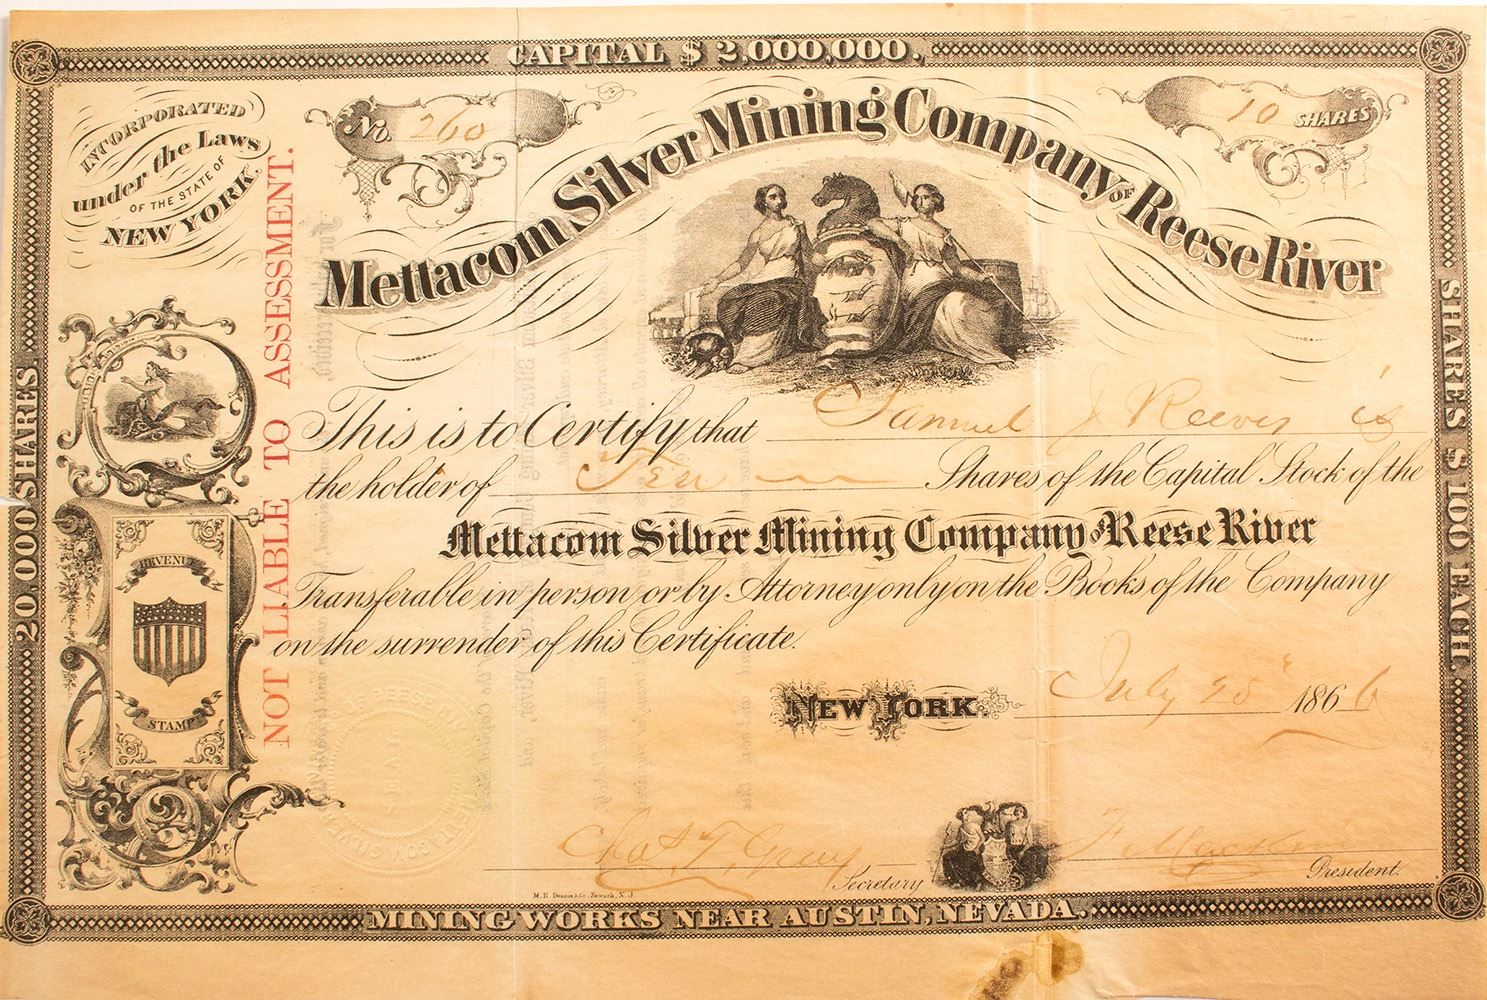 CAPITAL $ 2,000,000.
INCORPORATED
under the Laws
OF THE STATE OF
NEW YORK.
No. 260
10 SHARES
Mettacom Silver Mining Company OF Reese River
NOT LIABLE TO ASSESSMENT.
20,000 SHARES.
SHARES $ 100 EACH.
This is to Certify that Samuel J Reeves is
the holder of Ten Shares of the Capital Stock of the
Mettacom Silver Mining Company of Reese River
Transferable in person or by Attorney only on the Books of the Company
on the surrender of this Certificate.
REVENUE
STAMP
NEW YORK. July 25 1866
Chas T. Gray Secretary
President.
M. R. Dennis & Co. Newark, N. J.
MINING WORKS NEAR AUSTIN, NEVADA.